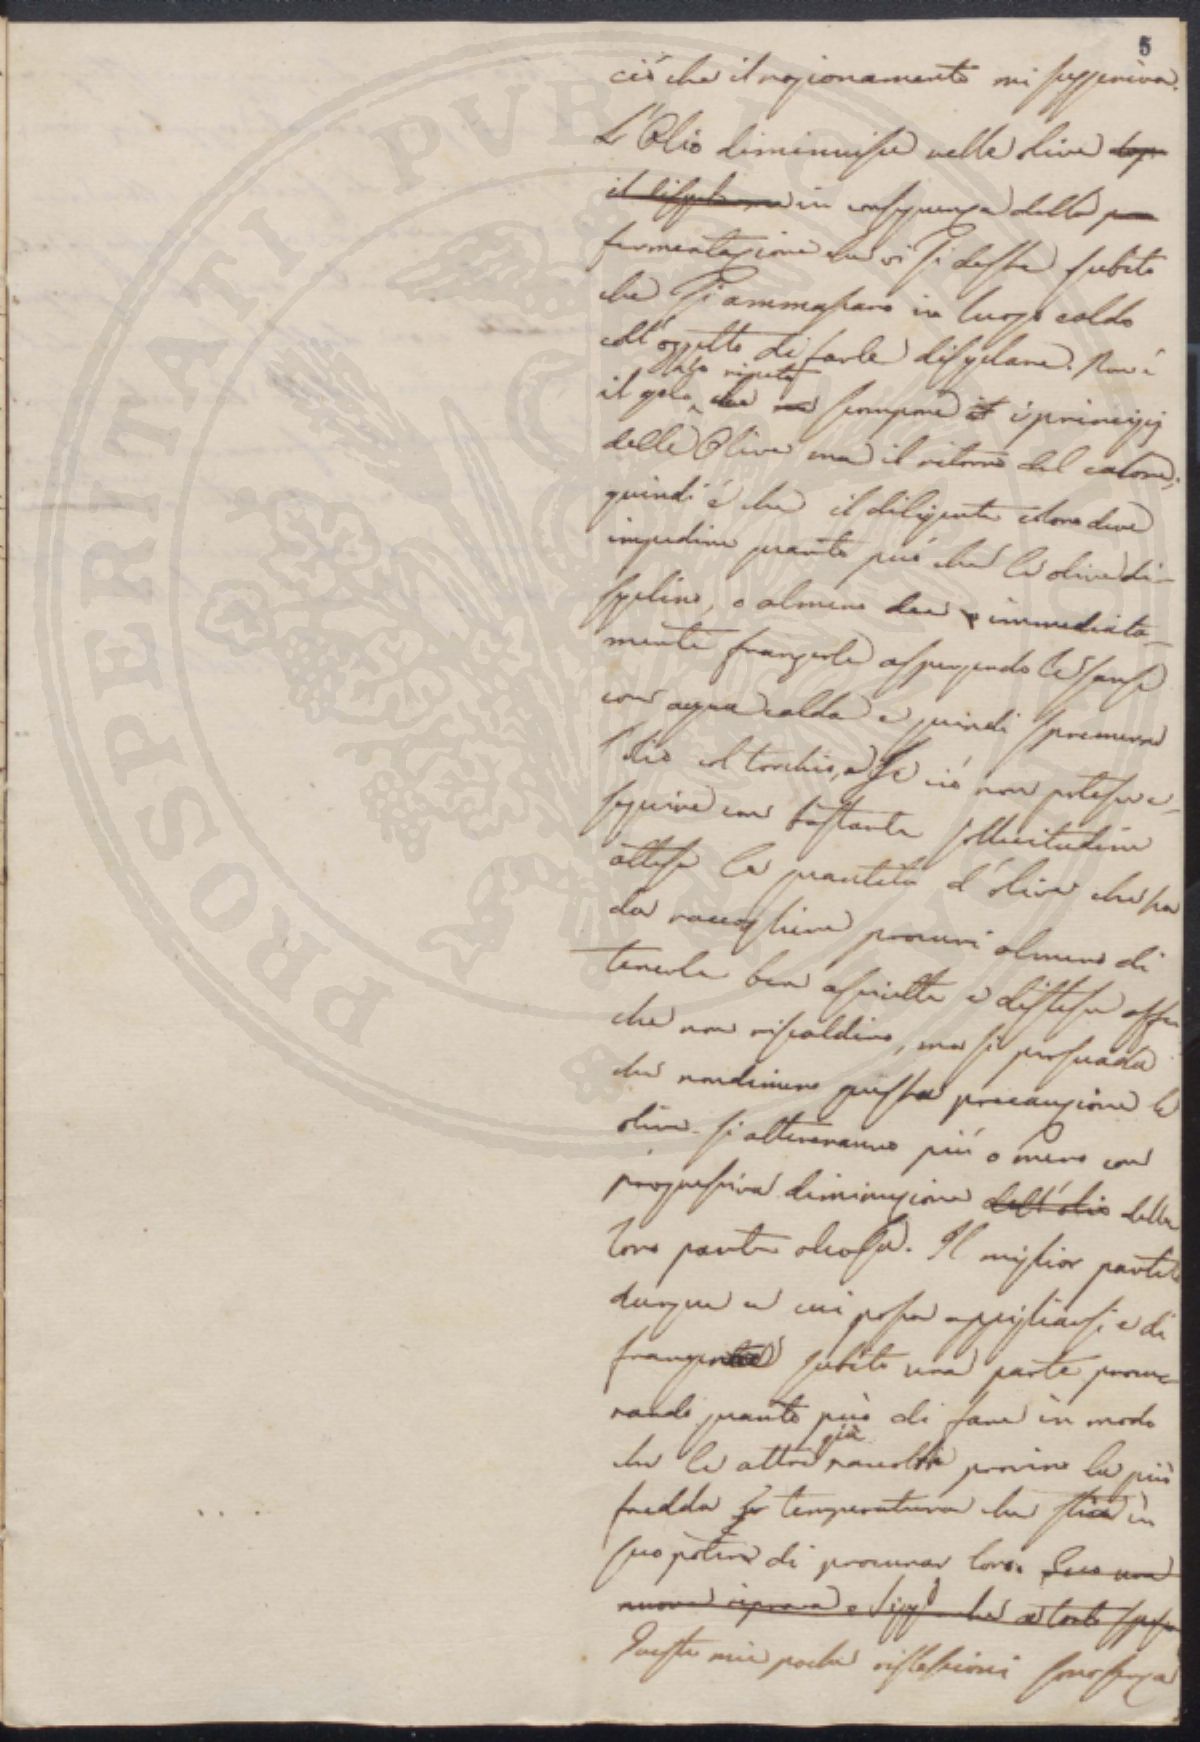 5
ciò che il ragionamento mi suggeriva.
L'Olio diminuisce nelle olive
in conseguenza della
fermentazione che vi si desta subito
che si ammassano in luogo caldo
coll'oggetto di farle disgelare. Non è
il gelo che scompone i principij
delle Olive ma il ritorno del calore,
quindi è che il diligente colono deve
impedire quanto può che le olive di-
sgelino, o almeno dee immediata-
mente frangerle aspergendo le sanse
con acqua calda e quindi spremerne
l'olio col torchio, e se ciò non potesse e-
seguire con bastante sollecitudine
attesa la quantità d'olive che ha
da raccogliere procuri almeno di
tenerle ben asciutte e distese affin
che non riscaldino, ma si persuada
che nondimeno questa precauzione le
olive si altereranno più o meno con
progressiva diminuzione dell'olio della
loro parte oleosa. Il miglior partito
dunque a cui possa appigliarsi è di
frangerne subito una parte procu-
rando quanto può di fare in modo
già
che le altre raccolte provino la più
fredda temperatura che sia in
suo potere di procurar loro. Ecco una
nuova riprova o Sigg.i che a torto
Queste mie poche riflessioni sono senza
PROSPERITATI PVBLICAE